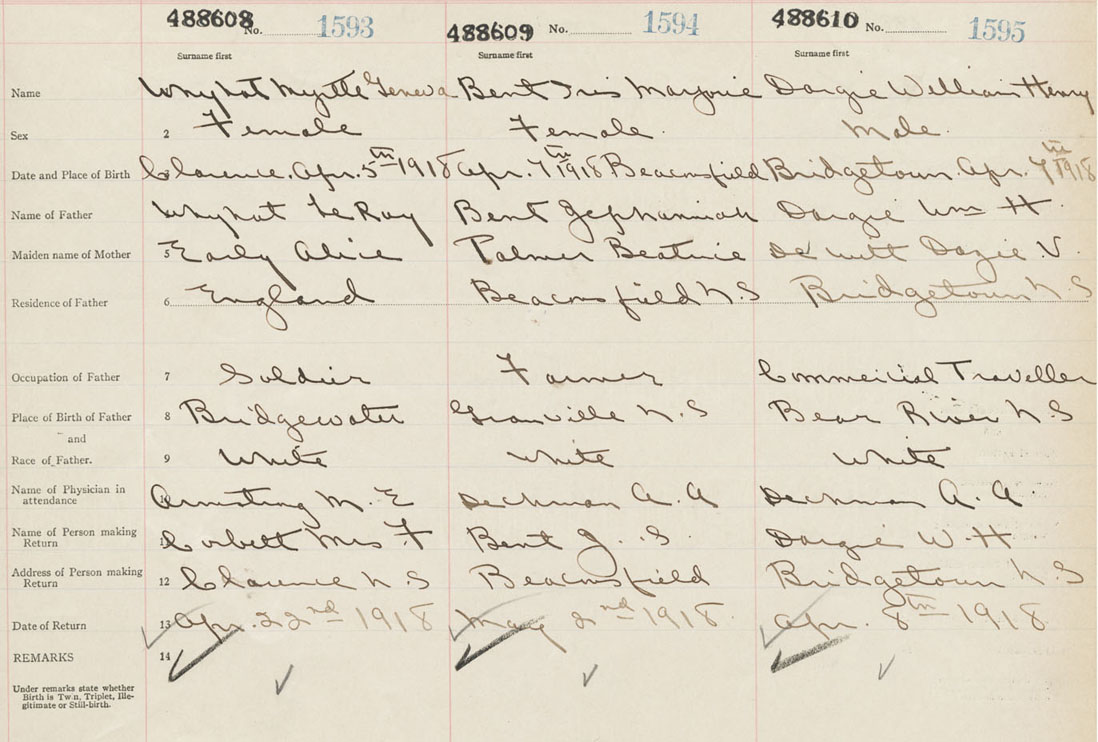 488608 No. 1593 488609 No. 1594 488610 No. 1595
Surname first Surname first Surname first
Name Whynot Myrtle Geneva Bent Iris Marjorie Dargie William Henry
Sex 2 Female Female. Male.
Date and Place of Birth Clarence. Apr. 5th 1918 Apr. 7th 1918 Beaconsfield Bridgetown. Apr. 7th 1918
Name of Father Whynot LeRoy Bent Zephaniah Dargie Wm H.
Maiden name of Mother 5 Early Alice Palmer Beatrice DeWitt V.
Residence of Father 6 England Beaconsfield N.S Bridgetown N.S
Occupation of Father 7 Soldier Farmer Commercial Traveller
Place of Birth of Father 8 Bridgewater Granville N.S Bear River N.S
and
Race of Father. 9 White White White
Name of Physician in
attendance Armstrong M. E Dechman A. A Dechman A. A.
Name of Person making
Return Corbett Mrs F Bent Z. S. Dargie W. H.
Address of Person making
Return 12 Clarence N S Beaconsfield Bridgetown N S
Date of Return 13 Apr. 22nd 1918 May 2nd 1918. Apr. 8th 1918
REMARKS 14
Under remarks state whether
Birth is Twin, Triplet, Ille-
gitimate or Still-birth.